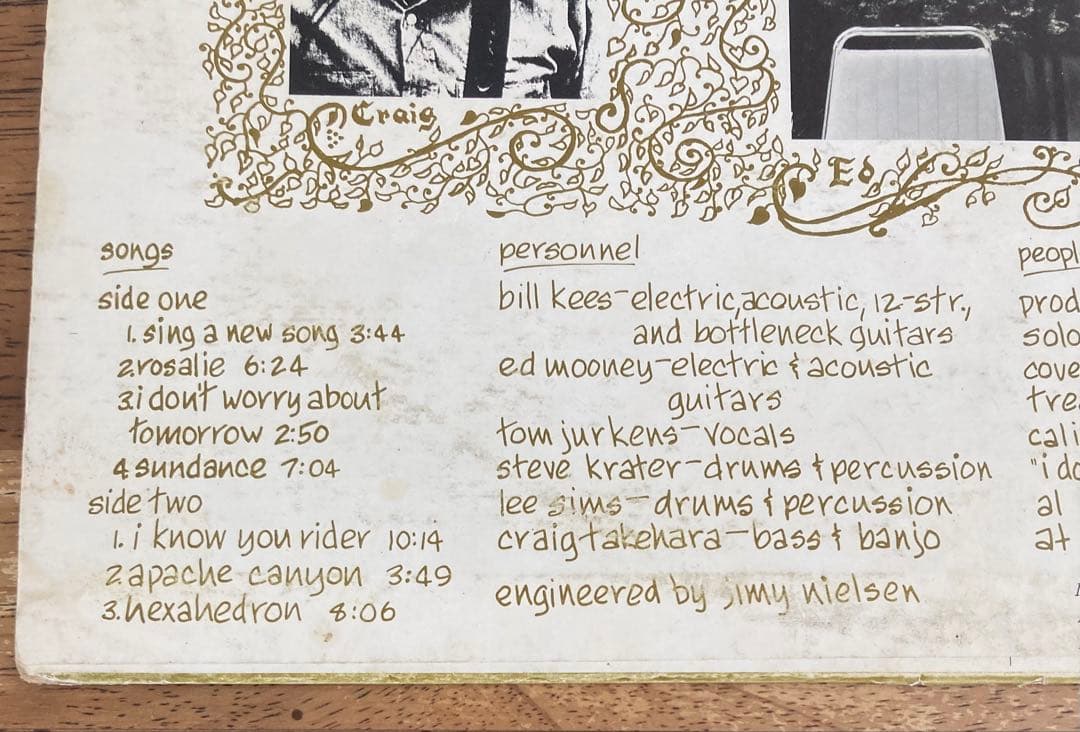 Craig
Ed
songs
side one
1. sing a new song 3:44
2. rosalie 6:24
3. i don't worry about
tomorrow 2:50
4 sundance 7:04
side two
1. i know you rider 10:14
2 apache canyon 3:49
3. hexahedron 8:06
personnel
bill kees - electric, acoustic, 12-str.,
and bottleneck guitars
ed mooney - electric & acoustic
guitars
tom jurkens - vocals
steve krater - drums & percussion
lee sims - drums & percussion
craig takehara - bass & banjo
engineered by jimy nielsen
peopl
prod
solo
cove
tre
cali
"i do
al
at